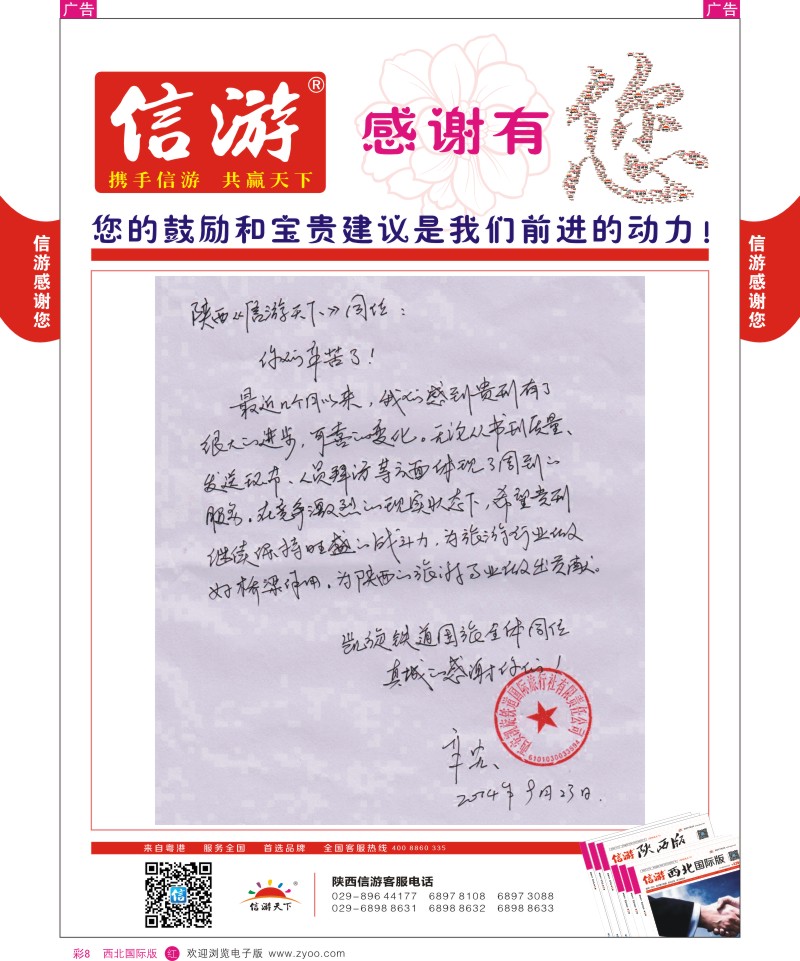 广告
广告
信游®
携手信游 共赢天下
感谢有
您
您的鼓励和宝贵建议是我们前进的动力!
信游感谢您
信游感谢您
陕西《信游天下》同仁:
你们辛苦了!
最近几个月以来,我们感到贵刊有了
很大的进步,可喜的变化。无论从书刊质量、
发送现市、人员拜访等方面体现了周到的
服务。在竞争激烈的现实状态下,希望贵刊
继续保持旺盛的战斗力,为旅游行业做
好桥梁作用,为陕西的旅游事业做出贡献。
凯旋铁道国旅全体同仁
真诚的感谢你们!
西安凯旋铁道国际旅行社有限责任公司
6101030033094
2014年9月23日.
来自粤港 服务全国 首选品牌 全国客服热线 400 8860 335
信游
信游天下
陕西信游客服电话
029-896 44177 6897 8108 6897 3088
029-6898 8631 6898 8632 6898 8633
信游 陕西版
信游 西北国际版
彩8 西北国际版 红 欢迎浏览电子版 www.zyoo.com